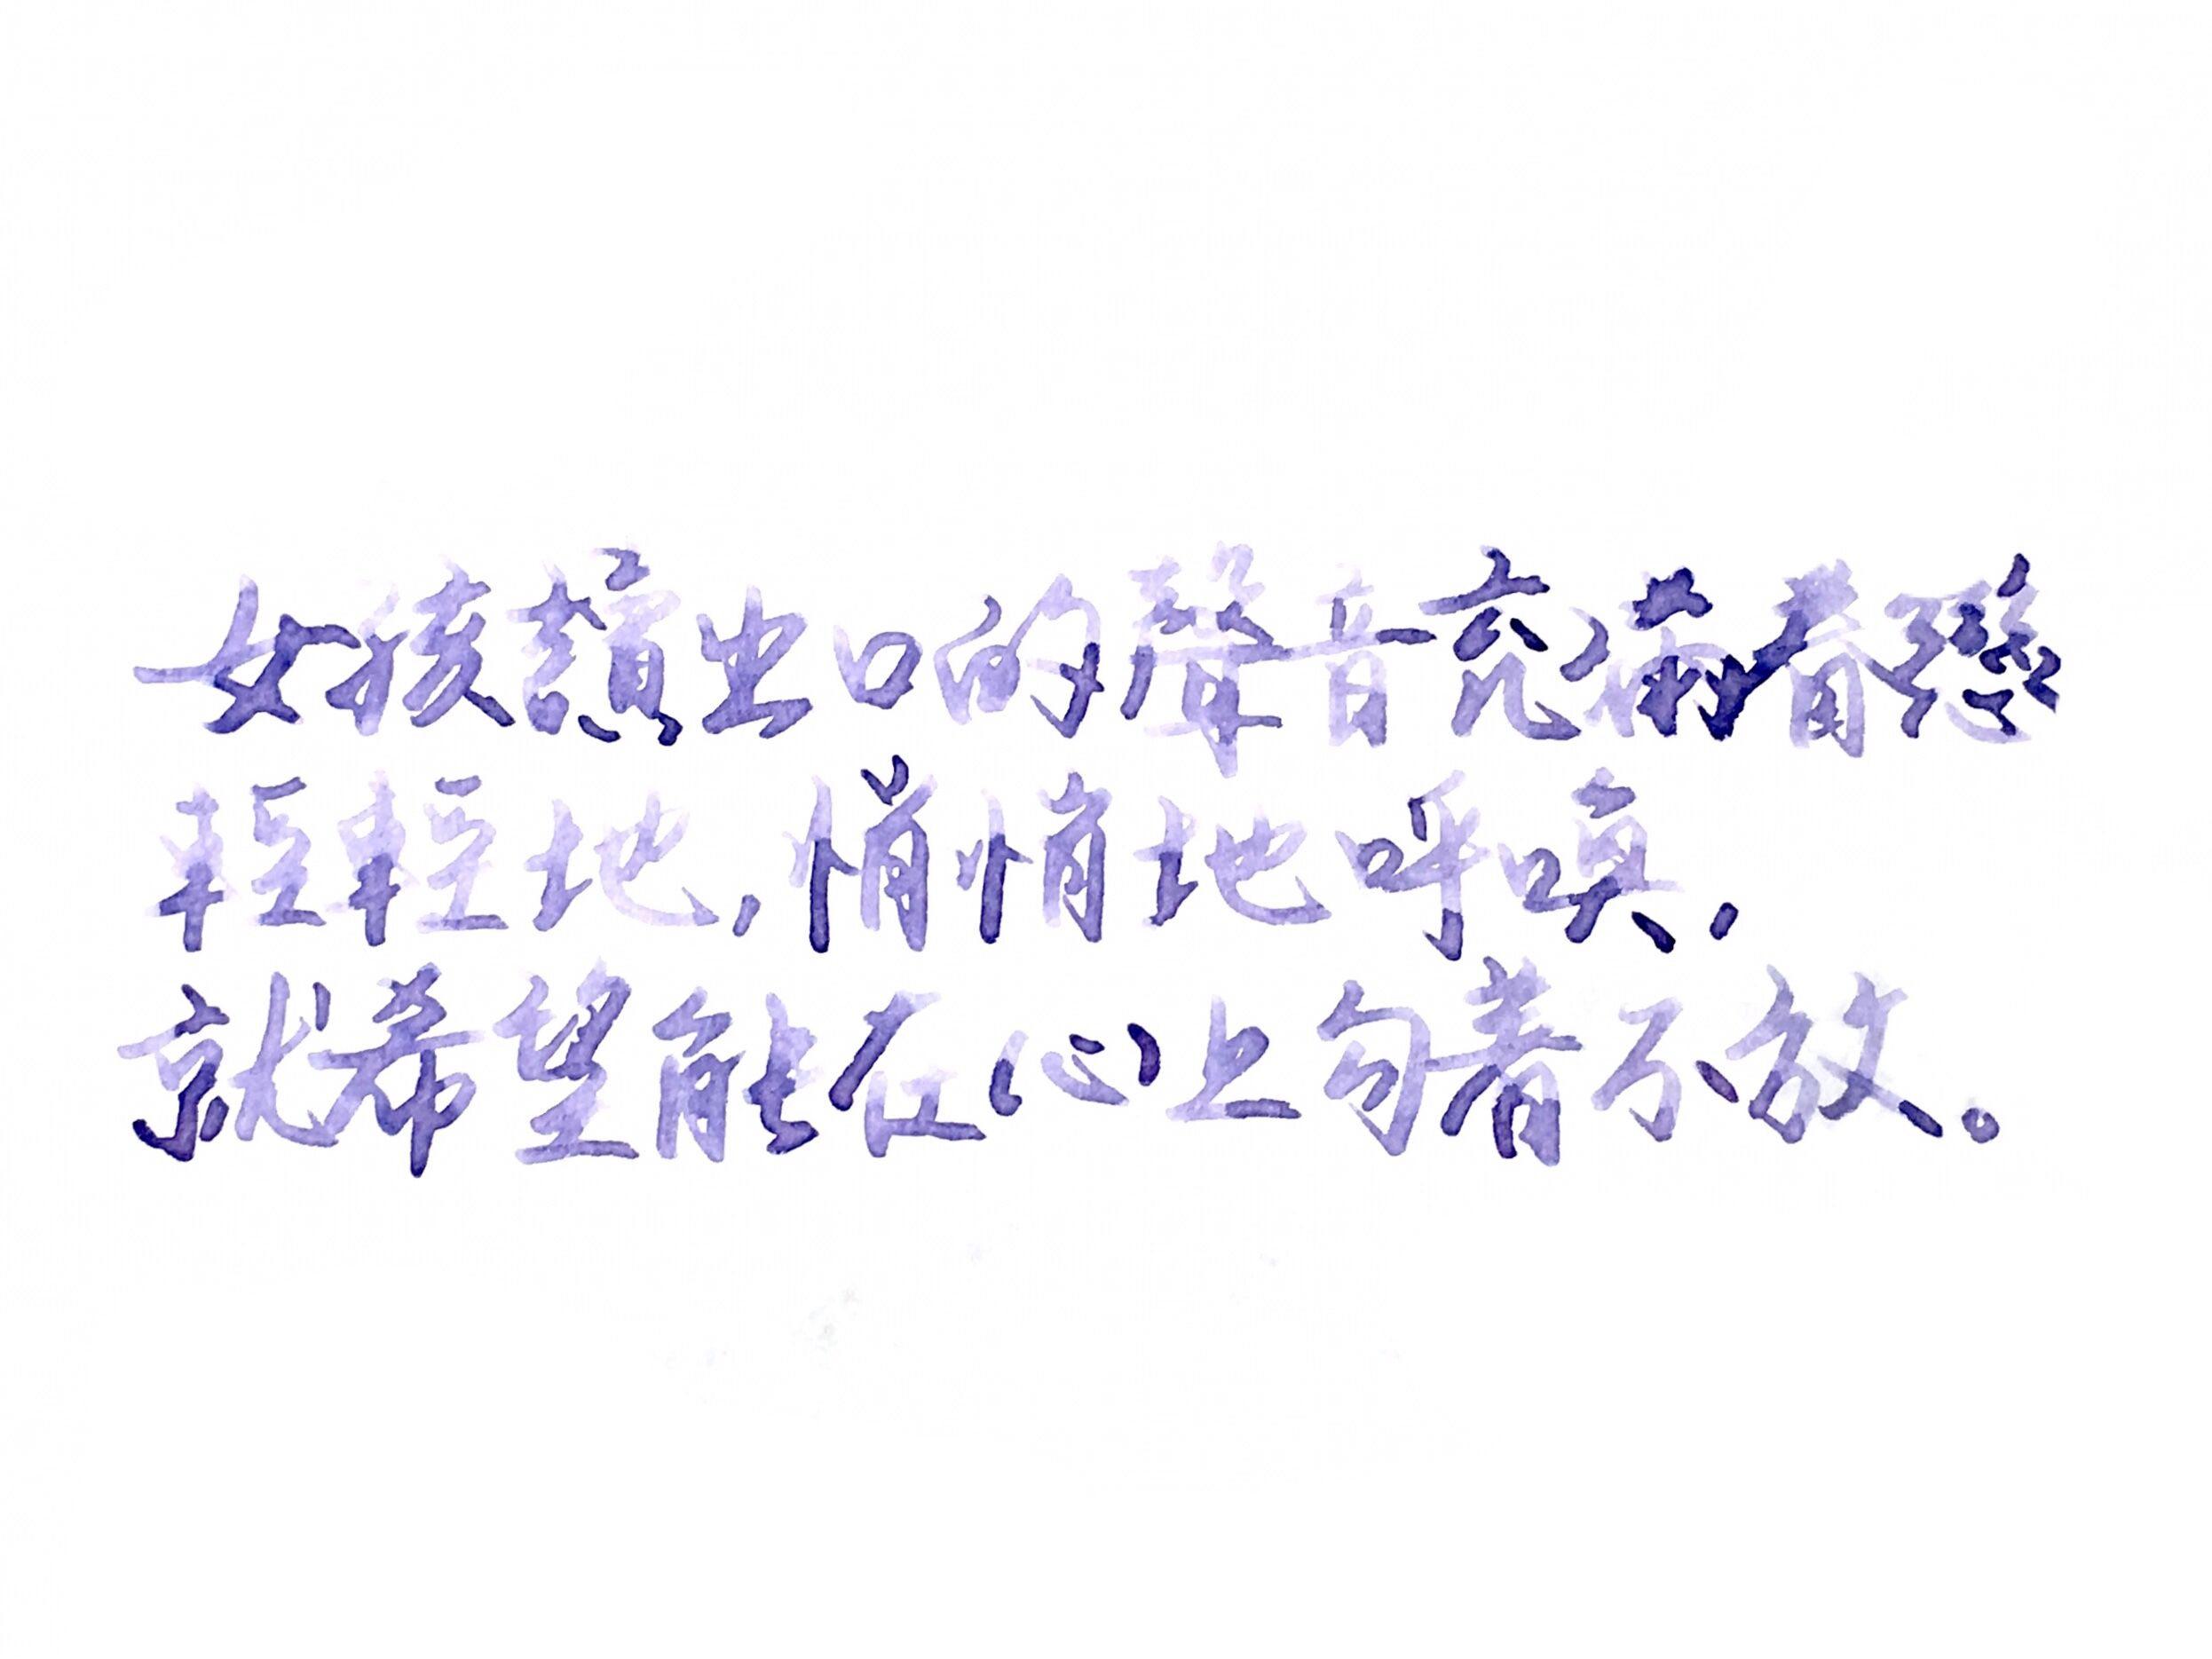 女孩讀出口的聲音充滿著戀
輕輕地,悄悄地呼喚,
就希望能在心上勾著不放。